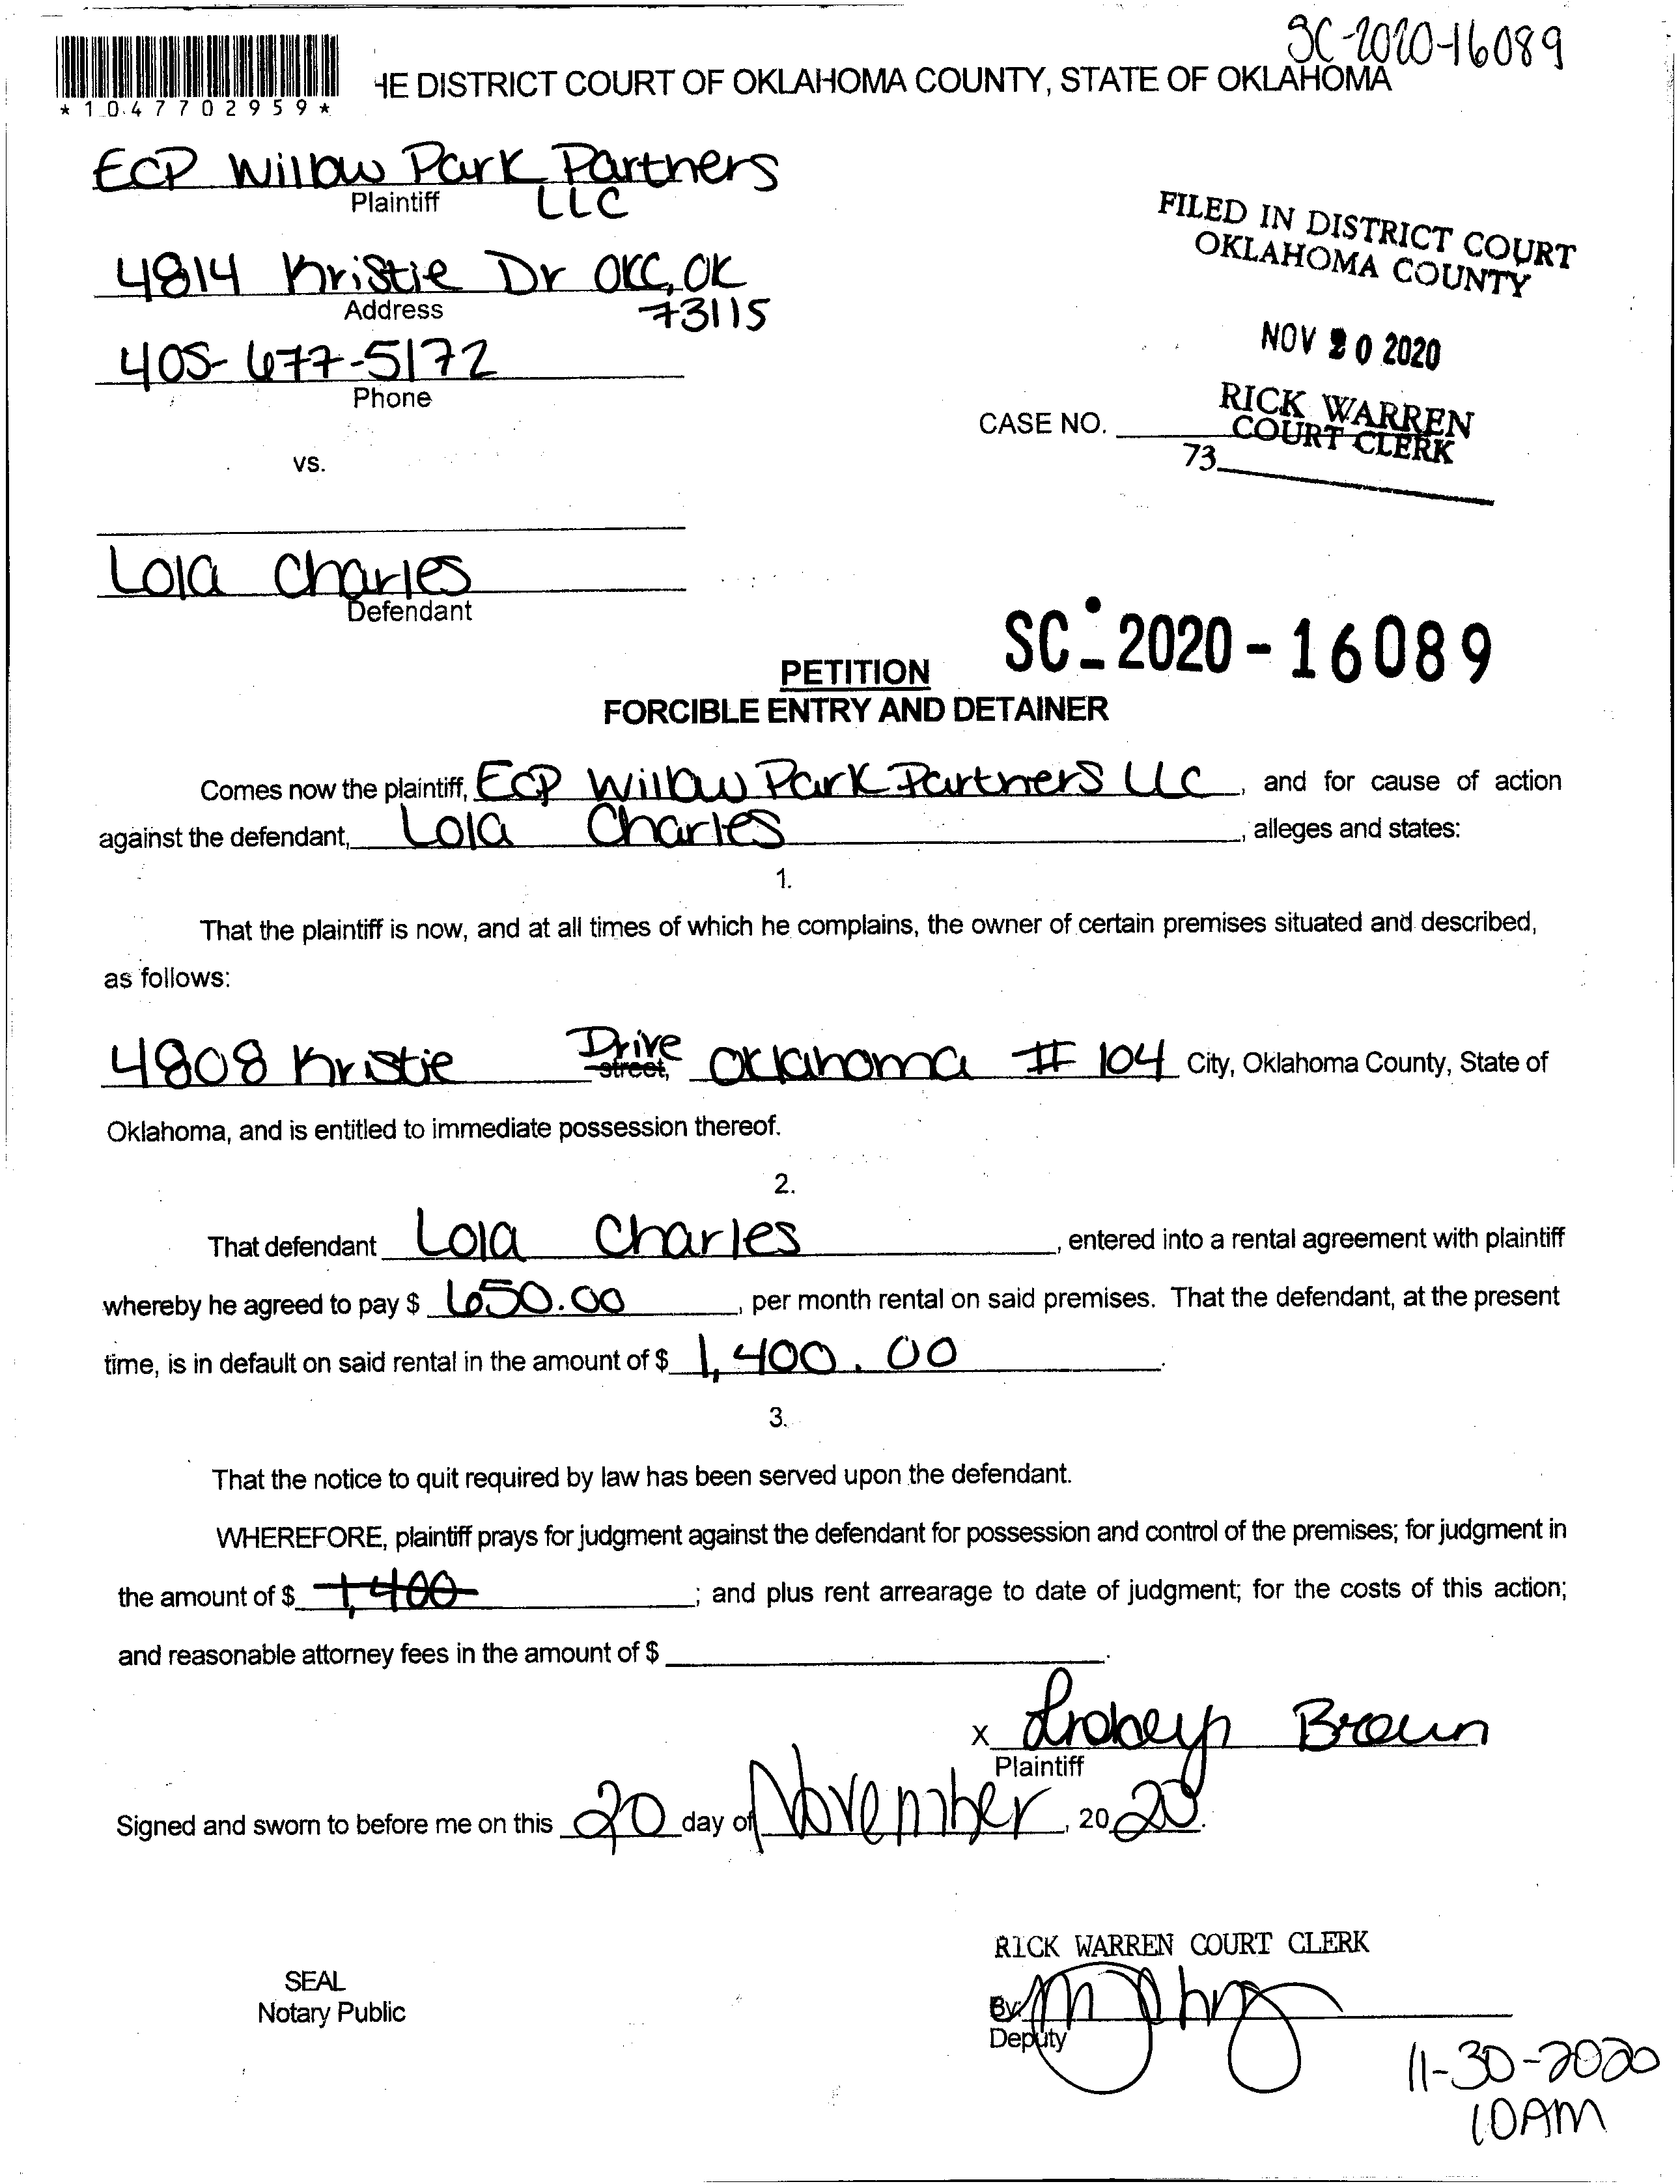 SC-2020-16089
HE DISTRICT COURT OF OKLAHOMA COUNTY, STATE OF OKLAHOMA
* 1 0 4 7 7 0 2 9 5 9 *
ECP Willow Park Partners
Plaintiff LLC
4814 Kristie Dr OKC, OK
Address 73115
405-677-5172
Phone
FILED IN DISTRICT COURT
OKLAHOMA COUNTY
NOV 20 2020
RICK WARREN
COURT CLERK
73
CASE NO.
vs.
Lola Charles
Defendant
SC-2020-16089
PETITION
FORCIBLE ENTRY AND DETAINER
Comes now the plaintiff, ECP Willow Park Partners LLC, and for cause of action
against the defendant, Lola Charles, alleges and states:
1.
That the plaintiff is now, and at all times of which he complains, the owner of certain premises situated and described,
as follows:
4808 Kristie Drive street, Oklahoma # 104 City, Oklahoma County, State of
Oklahoma, and is entitled to immediate possession thereof.
2.
That defendant Lola Charles, entered into a rental agreement with plaintiff
whereby he agreed to pay $ 650.00, per month rental on said premises. That the defendant, at the present
time, is in default on said rental in the amount of $ 1,400.00.
3.
That the notice to quit required by law has been served upon the defendant.
WHEREFORE, plaintiff prays for judgment against the defendant for possession and control of the premises; for judgment in
the amount of $ 1,400; and plus rent arrearage to date of judgment; for the costs of this action;
and reasonable attorney fees in the amount of $ .
x Brown
Plaintiff
Signed and sworn to before me on this 20 day of November, 2020.
RICK WARREN COURT CLERK
SEAL
Notary Public
By:
Deputy
11-30-2020
10AM